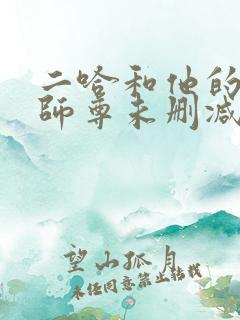 二哈和他的
師尊未删减
望山孤月
未任同意禁止转载